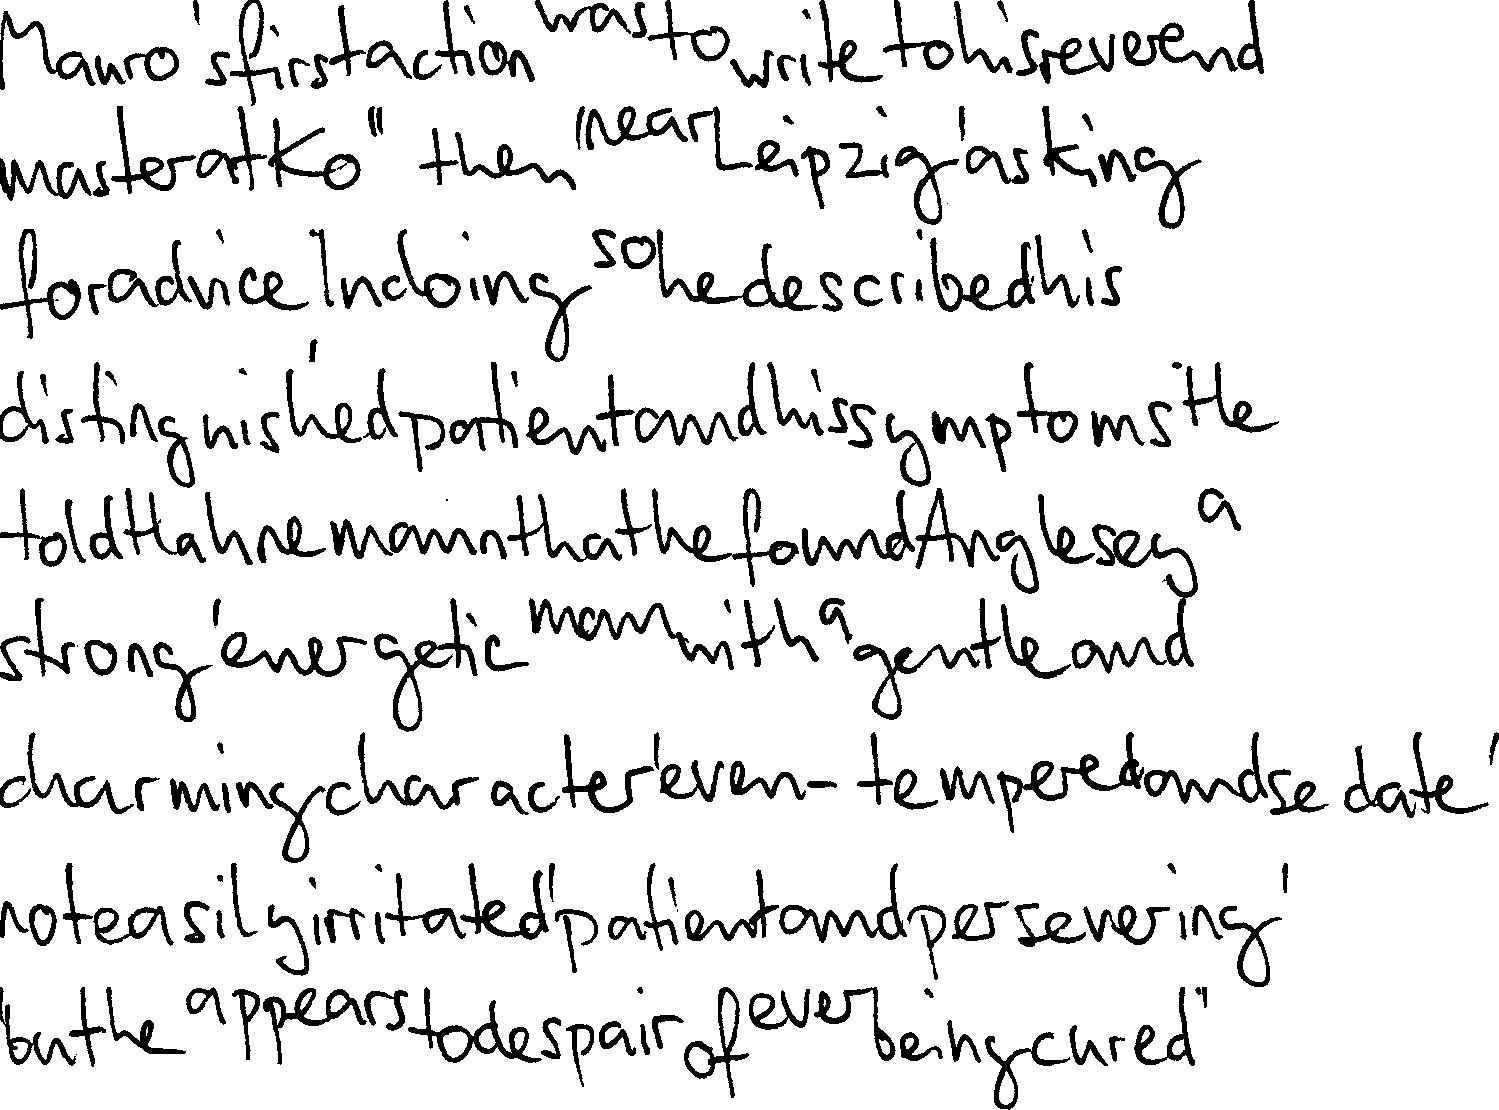 Mauro's first action was to write to his reverend
master at Ko" then (near Leipzig' asking
for advice In doing so he described his
distinguished patient and his symptoms He
told Hahnemann that he found Anglesey a
strong' energetic man with a gentle and
charming character' even-tempered and sedate'
not easily irritated' patient and persevering'
"but he appears to despair of ever being cured"